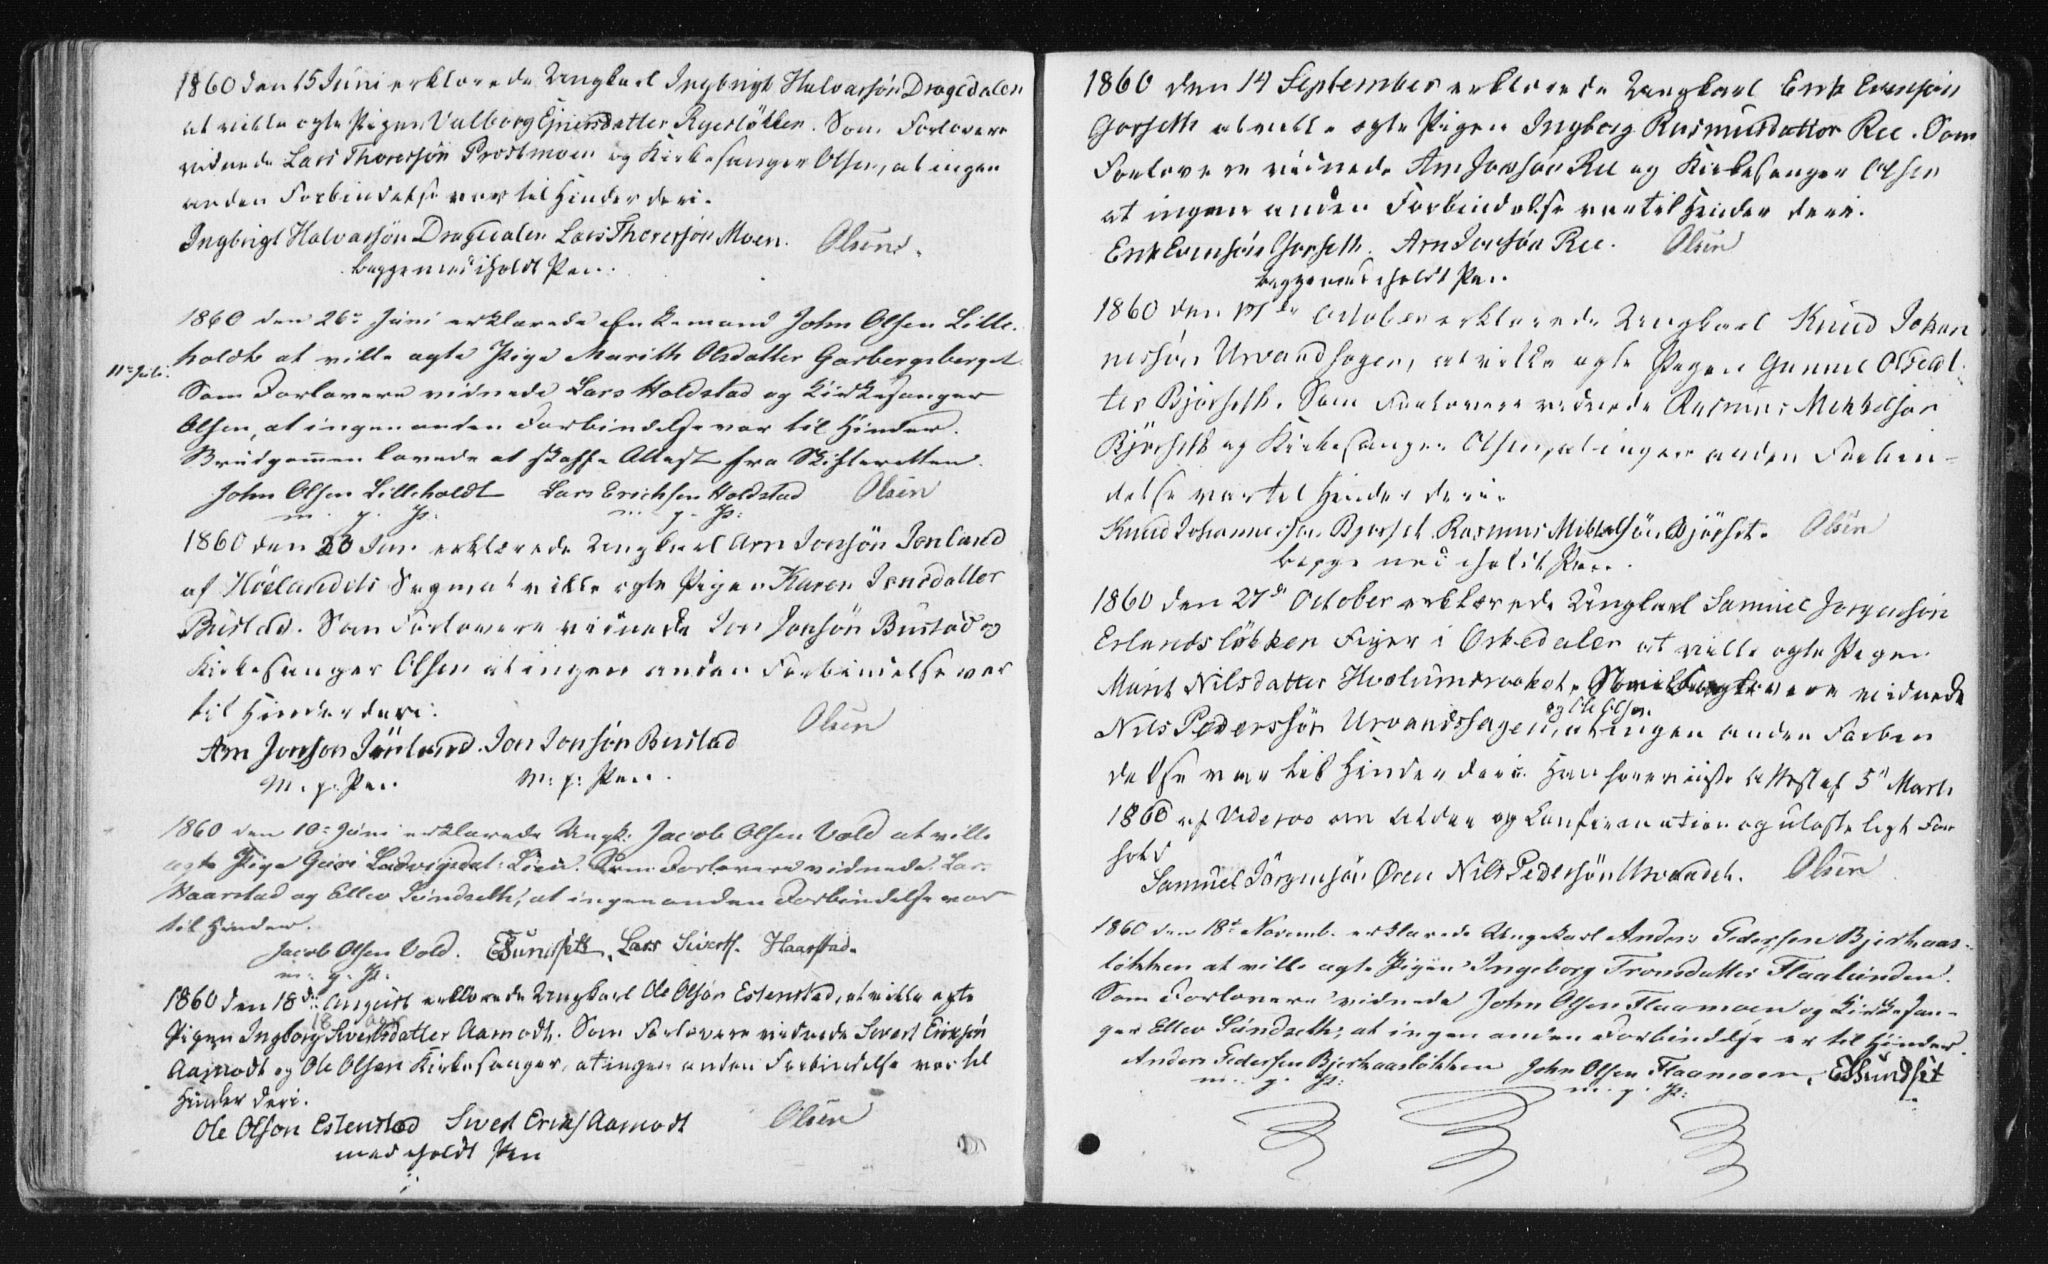 1860 den 15 Juni erklærede Ungkarl Ingbrigt Halvorsön Dragedalen
at ville ægte Pigen Valborg Ejnersdatter Ryeslökken. Som Forlovere
vidnede Lars Thoresön Prostmoen og Kirkesanger Olsen, at ingen
anden Forbindelse var til Hinder deri.
Ingbrigt Halvorsön Dragedalen Lars Thoresön Moen. Olsen.
begge med iholdt Pen.
1860 den 26de Juni erklærede Enkemand John Olsen Lille-
holdt at ville ægte Pige Marith Olsdatter Garbergsberget
11te Juli.
Som Forlovere vidnede Lars Holdstad og Kirkesanger
Olsen, at ingen anden Forbindelse var til Hinder.
Brudgommen lovede at skaffe Attest fra Skifteretten.
John Olsen Lilleholdt Lars Erichsen Holdstad Olsen
m. p. P: m. p. P:
1860 den 20 Jun. erklærede Ungkarl Arn Jonsön Jonland
af Hölandets Sogn at ville ægte Pigen Karen Jonsdatter
Bustad. Som Forlovere vidnede Jon Jonsön Bustad og
Kirkesanger Olsen at ingen anden Forbindelse var
til Hinder deri.
Olsen
Arn Jonson Jönland. Jon Jonsön Bustad
M. p. Pen. M: p: Pen.
1860 den 10de Juni erklærede Ungk: Jacob Olsen Vold at ville
ægte Pige Guri Ludvigsdat: Lien. Som Forlovere vidnede Lars
Haarstad og Ellev Sundseth, at ingen anden Forbindelse var
til Hinder.
Jacob Olsen Vold. ESundseth, Lars Siverts. Haarstad.
m. p. P:
1860 den 18de August erklærede Ungkarl Ole Olsön Estenstad, at ville ægte
Pigen Ingborg Sivertsdatter Aamodt. Som Forlovere vidnede Sivert Eriksön
Aamodt og Ole Olsen Kirkesanger, at ingen anden Forbindelse var til
Hinder deri.
Ole Olson Estenstad Sivert Eriks Aamodt Olsen
med iholdt Pen
1860 den 14 September erklærede Ungkarl Erik Evensön
Gorseth at ville ægte Pigen Ingborg Rasmusdatter Ree. Som
Forlovere vidnede Arn Jonsön Ree og Kirkesanger Olsen
at ingen anden Forbindelse var til Hinder deri.
Erik Evensön Gorseth. Arn Jonsön Ree. Olsen
begge med iholdt Pen.
1860 den 17de October erklærede Ungkarl Knud Johan
nessön Urvandhagen, at ville ægte Pigen Gunnel Olsdat-
ter Björseth. Som Forlovere vidnede Rasmus Mikkelsön
Björseth og Kirkesanger Olsen, at ingen anden Forbin-
delse var til Hinder deri.
Knud Johannesson Bjorset Rasmus Mikkelsön Björset. Olsen
begge med iholdt Pen.
1860 den 27de October erklærede Ungkarl Samuel Jörgensön
Erlandslökken Eiger i Orkedalen at ville ægte Pigen
Marit Nilsdatter Hvolumsvoldet. Som Forlovere vidnede
og Ole Olsen
Nils Pedersön Urvandshagen, at ingen anden Forbin
delse var til Hinder deri. Han foreviiste Attest af 5te Marts
1860 af om Alder og Confirmation og ulasteligt For
hold
Samuel Jörgensön Øren Nils Pedersön Urvandet. Olsen
1860 den 18de Novemb. erklærede Ungekarl Anders Pedersen Bjerkaas-
løkken at ville ægte Pigen Ingeborg Tronsdatter Flaalunden.
Som Forlovere vidnede John Olsen Flaamoen og Kirkesan-
ger Ellev Sundseth, at ingen anden Forbindelse er til Hinder.
Anders Pedersen Bjerkaasløkken John Olsen Flaamoen, ESundset
m. p. P: m. p. P: